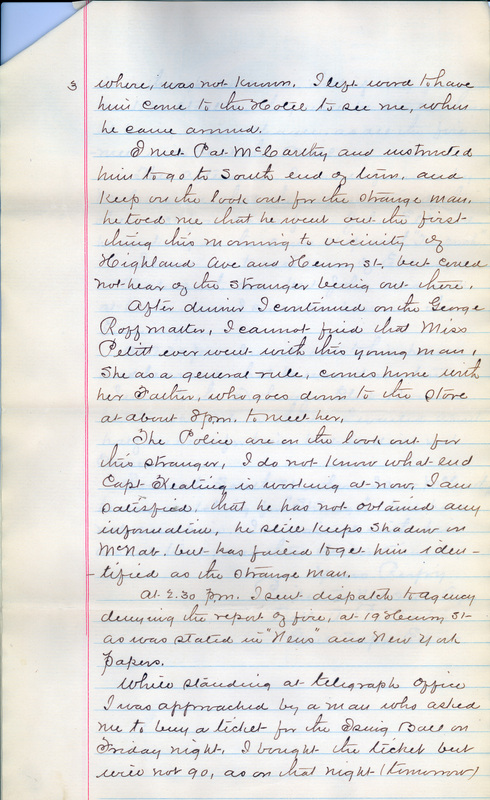 3
where, was not known. I left word to have
him come to the Hotel to see me, when
he came around.
I met Pat McCarthy and instructed
him to go to South end of town, and
keep on the look out for the strange man.
he toed me that he went out the first
thing this morning to vicinity of
Highland Ave and Henry St, but coued
not hear of the stranger being out there.
After dinner I continued on the George
Roff matter, I cannot find that Miss
Petitt ever went with this young man,
She as a general rule, comes home with
her Father, who goes down to the Store
at about 8 pm. to meet her.
The Police are on the look out for
this stranger, I do not know what end
Capt Keating is working at now, I am
satisfied, that he has not obtained any
information, he still keeps shadow on
McNab. but has failed to get him iden-
tified as the strange man.
At 2.30 P.m. I sent dispatch to agency
denying the report of fire, at 19 Henry St
as was stated in "News" and New York
Papers.
While standing at telegraph Office
I was approached by a man who asked
me to buy a ticket for the Ball on
Friday night. I bought the ticket but
will not go, as on that night (tomorrow)